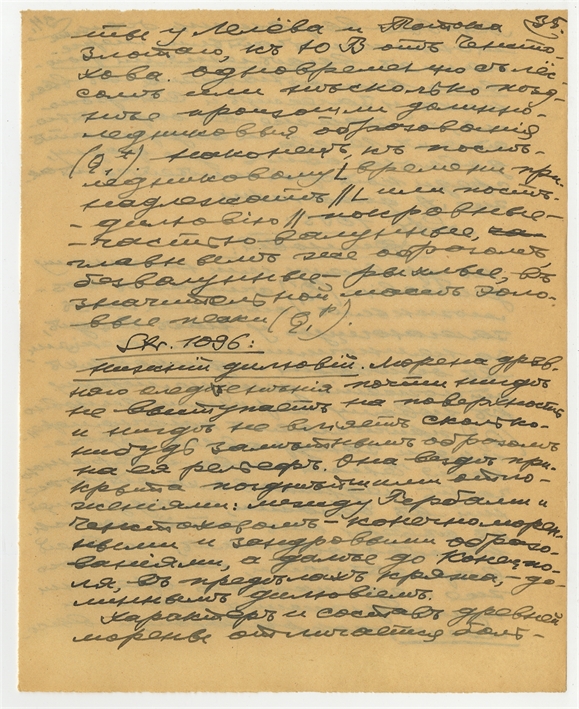 35.
ты у Лелёва и Потока
Злотаго, къ ЮВ отъ Ченсто-
хова. Одновременно съ лёс-
сомъ или нѣсколько позд-
нѣе произошли долинно-
ледниковыя образованія
(Q₁ᵗ). Наконецъ, къ послѣ-
ледниковому времени при-
надлежатъ // или постъ-
-дилювію // покровные-
-частью валунные,
главнымъ же образомъ,
безвалунные - рыхлые, въ
значительной массѣ эоло-
вые пески (Q₁ᵖ).
Str. 1096:
Нижній дилювій. Морена древ-
няго оледенѣнія почти нигдѣ
не выступаетъ на поверхность
и нигдѣ не вліяетъ сколько-
нибудь замѣтнымъ образомъ
на ея рельефъ. Она вездѣ при-
крыта позднѣйшими отло-
женіями: между Гербами и
Ченстоховомъ - конечноморен-
ными и зандровыми образо-
ваніями, а далѣе до Конецпо-
ля, въ предѣлахъ кряжа, - до-
линнымъ дилювіемъ.
Характеръ и составъ древней
морены отличается боль-